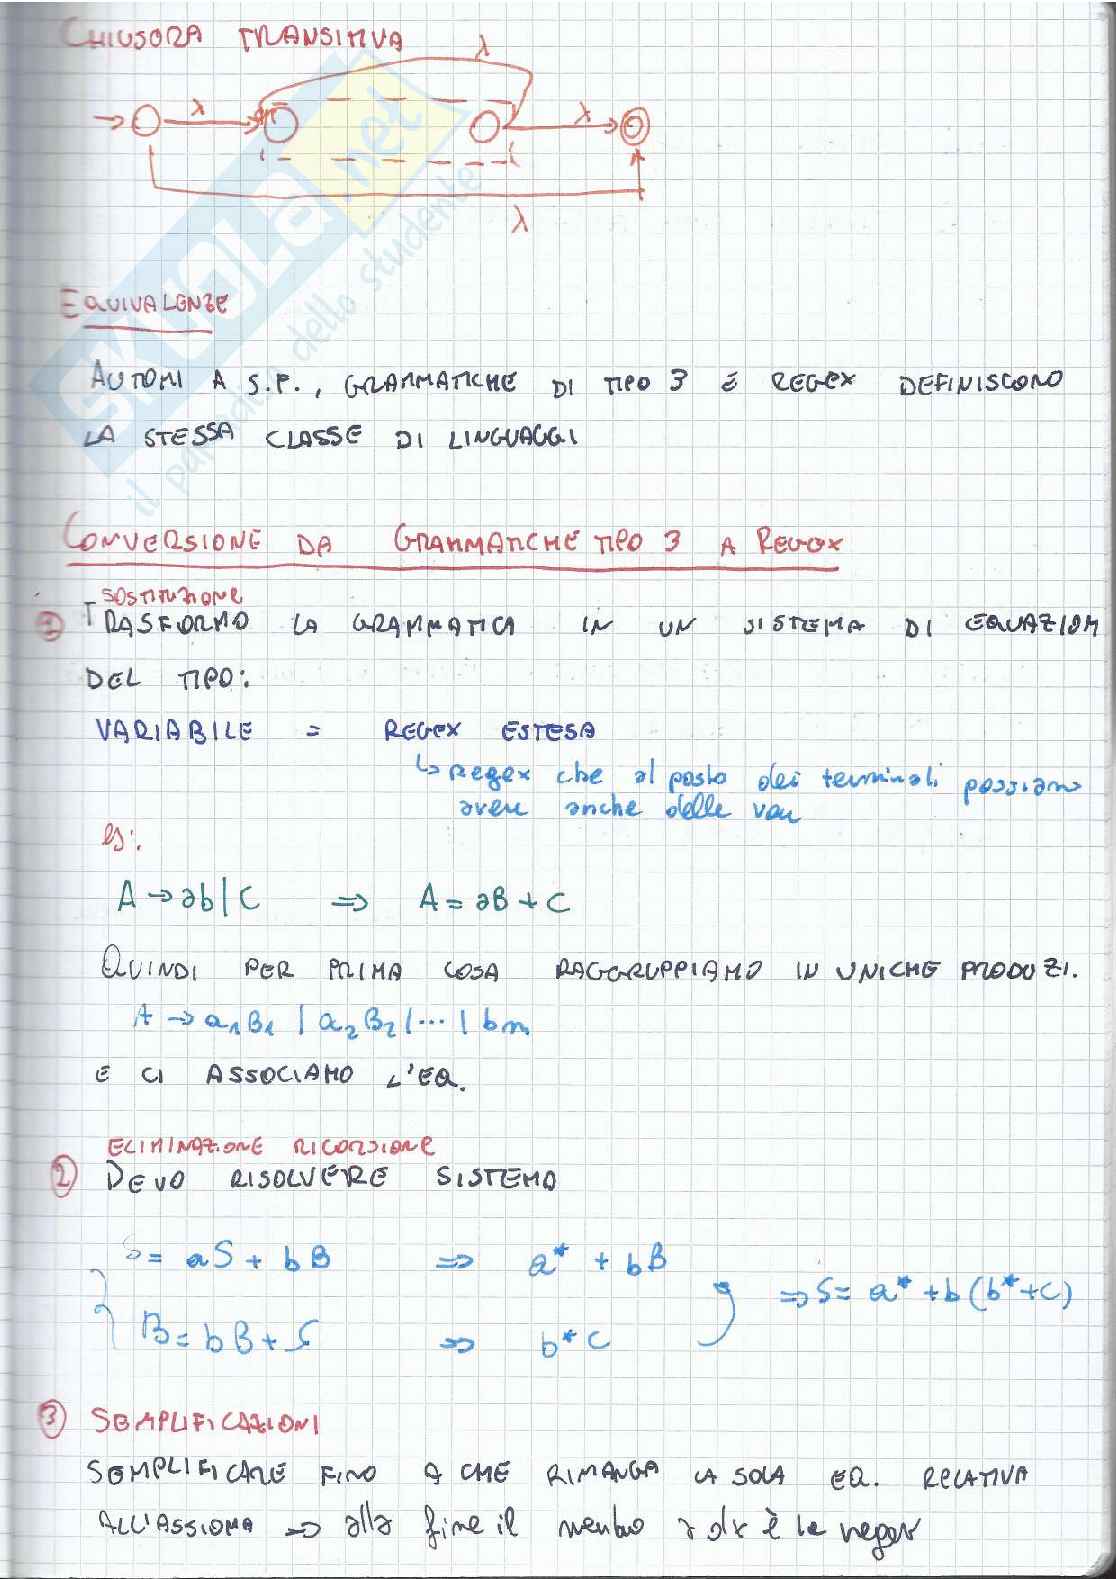 CHIUSURA TRANSITIVA
λ
λ
λ
λ
EQUIVALENZE
AUTOMI A S.F., GRAMMATICHE DI TIPO 3 E REGEX DEFINISCONO
LA STESSA CLASSE DI LINGUAGGI
CONVERSIONE DA GRAMMATICHE TIPO 3 A REGEX
SOSTITUZIONE
1 TRASFORMO LA GRAMMATICA IN UN SISTEMA DI EQUAZIONI
DEL TIPO:
VARIABILE = REGEX ESTESA
↳ regex che al posto dei terminali possiamo
avere anche delle var
es:
A → ab | C ⇒ A = aB + C
QUINDI PER PRIMA COSA RAGGRUPPIAMO IN UNICHE PRODUZI.
A → a₁B₁ | a₂B₂ | ... | bm
E CI ASSOCIAMO L'EQ.
ELIMINAZIONE RICORSIONE
2 DEVO RISOLVERE SISTEMA
S = aS + bB ⇒ a* + bB
⇒ S = a* + b(b*+C)
B = bB + C ⇒ b*C
3 SEMPLIFICAZIONI
SEMPLIFICARE FINO A CHE RIMANGA LA SOLA EQ. RELATIVA
ALL'ASSIOMA ⇒ alla fine il membro a dx è la regex
SKUOLA.net
il paradiso dello studente